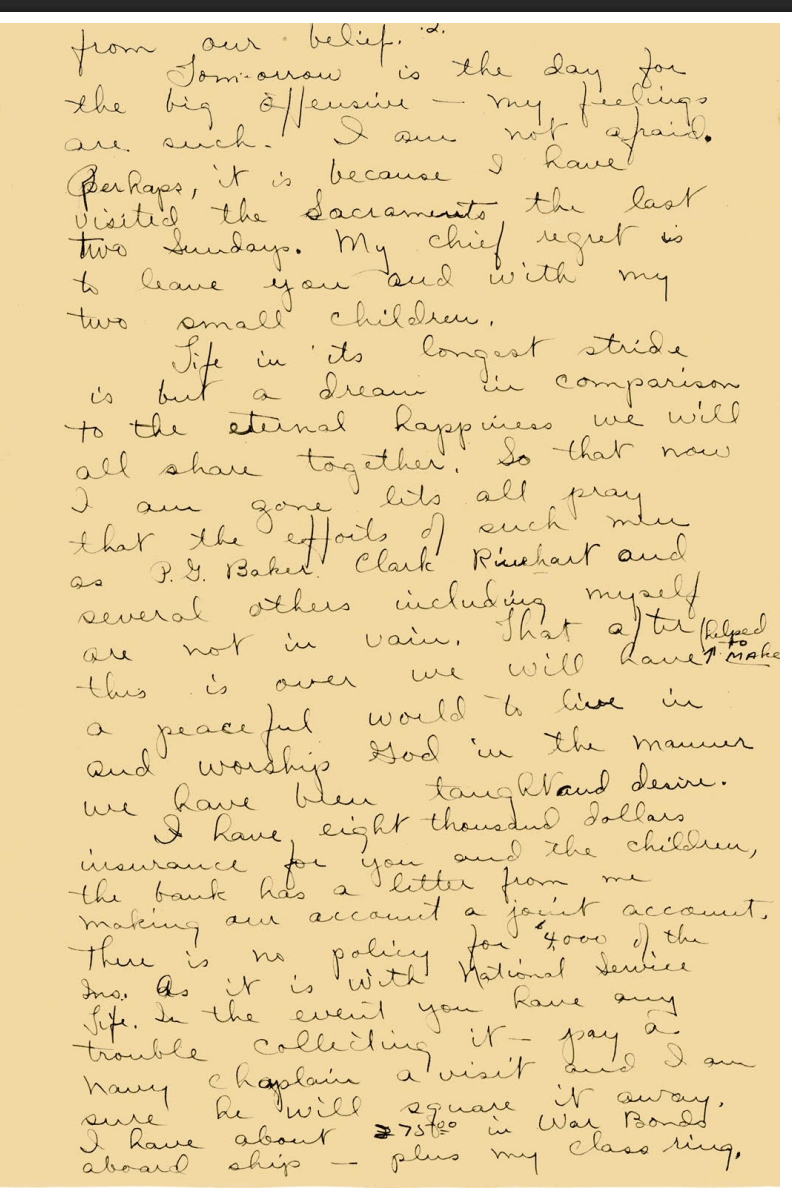 from our belief. .2.
Tomorrow is the day for
the big offensive – my feelings
are such. I am not afraid.
Perhaps, it is because I have
visited the Sacraments the last
two Sundays. My chief regret is
to leave you and with my
two small children.
Life in its longest stride
is but a dream in comparison
to the eternal happiness we will
all share together. So that now
I am gone lets all pray
that the efforts of such men
as P.G. Baker. Clark Rinehart and
several others including myself
are not in vain. That after
this is over we will have ↑ helped to MAKE
a peaceful world to live in
and worship God in the manner
we have been taught and desire.
I have eight thousand dollars
insurance for you and the children,
the bank has a letter from me
making our account a joint account.
There is no policy for $4000 of the
Ins. As it is with National Service
Life. In the event you have any
trouble collecting it – pay a
navy chaplain a visit and I am
sure he will square it away.
I have about in War Bonds
aboard ship – plus my class ring.